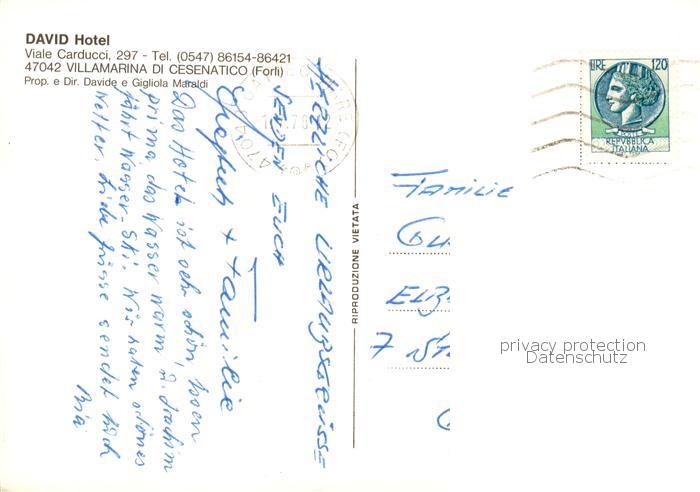 DAVID Hotel
Viale Carducci, 297 - Tel. (0547) 86154-86421
47042 VILLAMARINA DI CESENATICO (Forlì)
Prop. e Dir. Davide e Gigliola Maraldi
HERZLICHE URLAUBSGRÜSSE
SENDEN EUCH
+ Familie
Das Hotel ist sehr schön, Essen
prima das Wasser warm
fährt Wasser-Ski. Wir haben schönes
Wetter. Liebe Grüsse sendet Euch
RIPRODUZIONE VIETATA
LIRE 120
POSTE
REPVBBLICA
ITALIANA
FAMILIE
7
privacy protection
Datenschutz